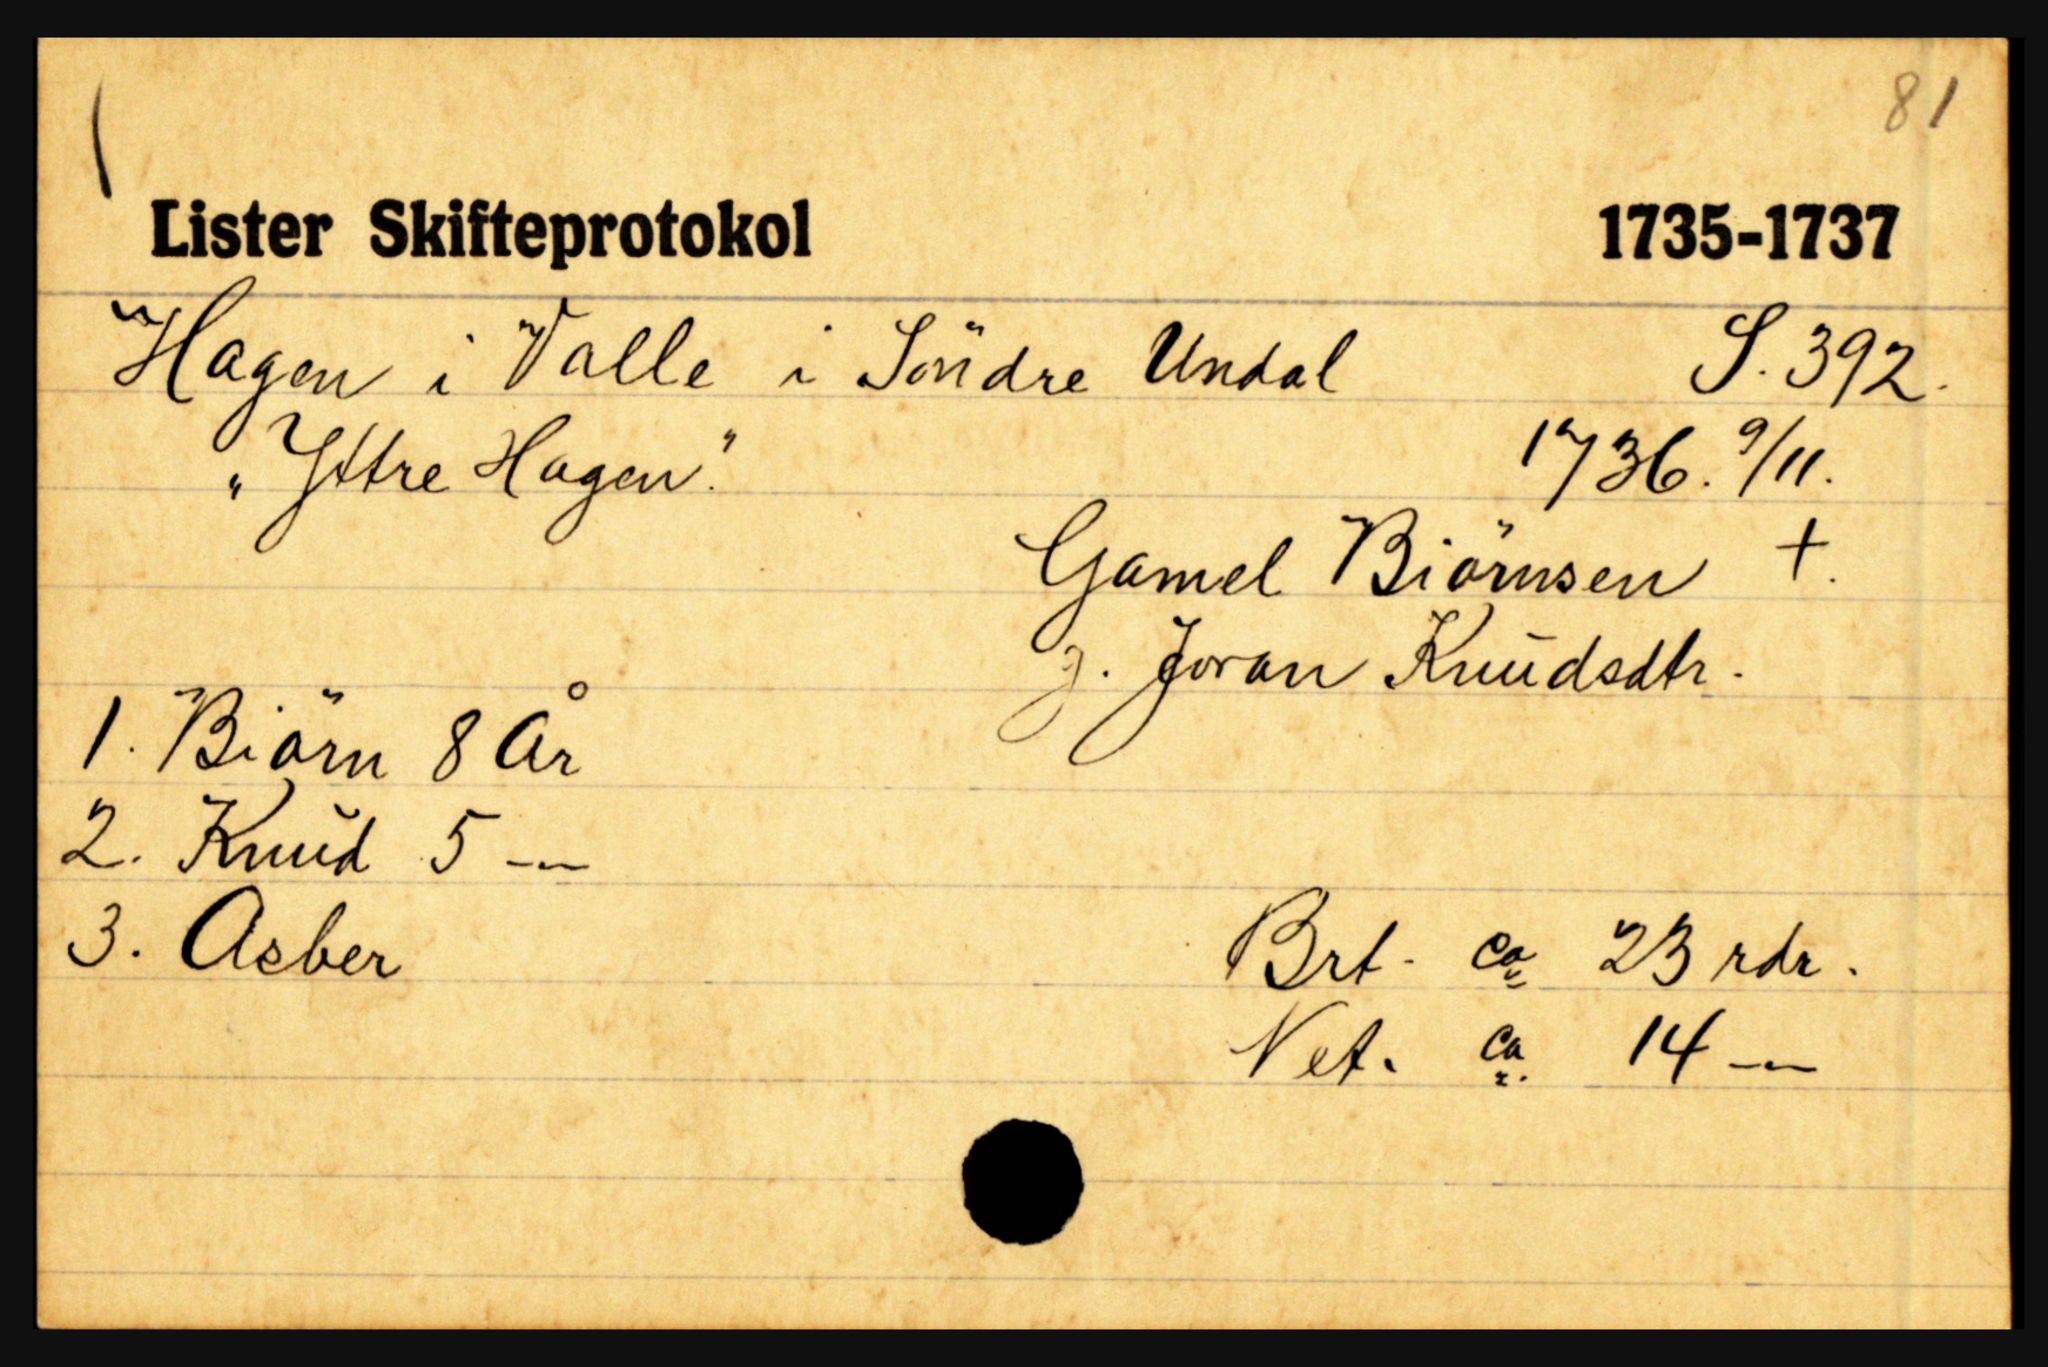 81
Lister Skifteprotokol 1735-1737
Hagen i Valle i Söndre Undal S. 392.
"Yttre Hagen". 1736. 9/11.
Gamel Biörnsen +.
g. Joran Knudsdtr.
1. Biörn 8 År
2. Knud 5 -"-
3. Asber
Brt. ca 23 rdr.
Net. ca. 14 -"-